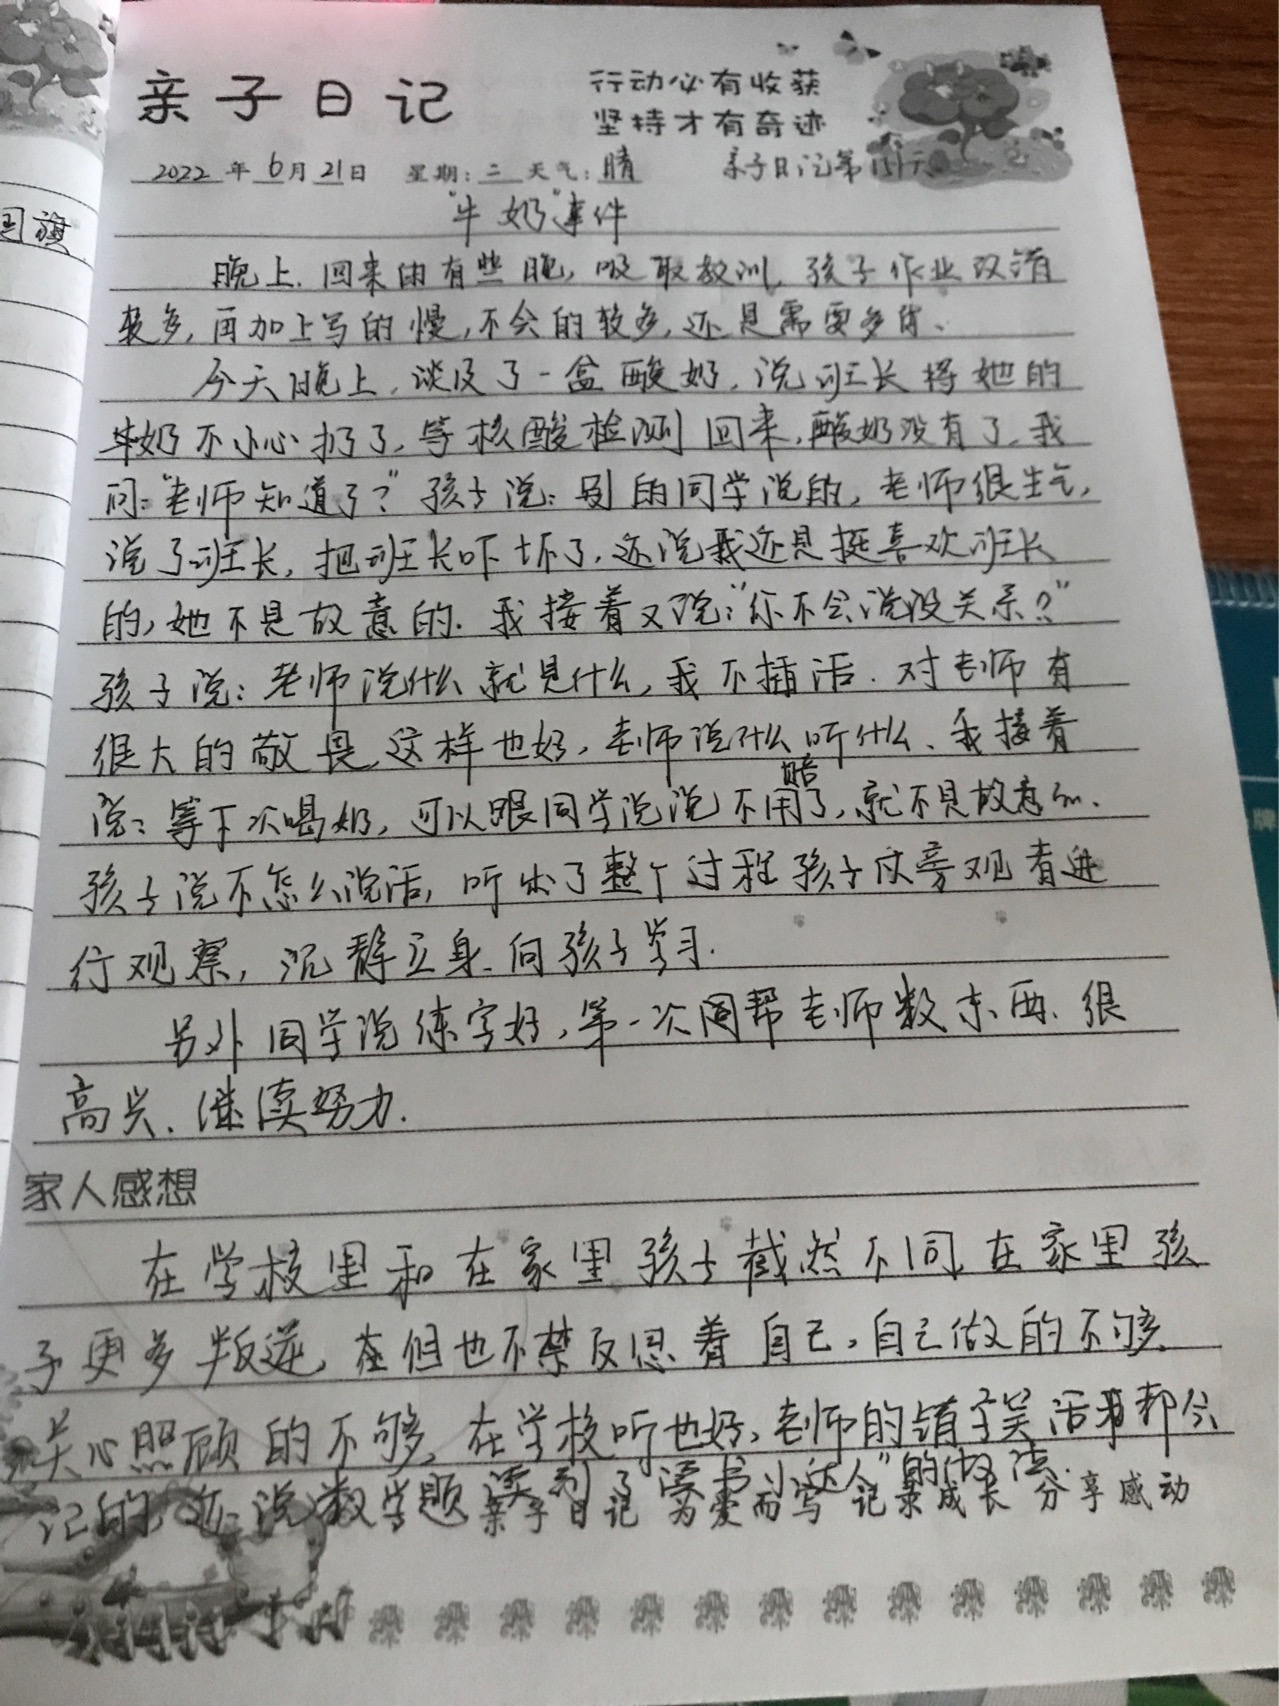 亲子日记
行动必有收获
坚持才有奇迹
2022年6月21日 星期:二 天气:晴 亲子日记第151天
"牛奶"事件
晚上.回来的有些晚,吸取教训,孩子作业改错
较多,再加上写的慢,不会的较多,还是需要多练、
今天晚上,谈及了一盒酸奶,说班长将她的
牛奶不小心扔了,等核酸检测回来,酸奶没有了,我
问:"老师知道了?"孩子说:别的同学说的,老师很生气,
说了班长,把班长吓坏了,还说我还是挺喜欢班长
的,她不是故意的.我接着又说:"你不会说没关系?"
孩子说:老师说什么就是什么,我不插话.对老师有
很大的敬畏,这样也好,老师说什么听什么、我接着
说:等下次喝奶,可以跟同学说说不用赔了,就不是故意的.
孩子说不怎么说话,听出了整个过程孩子从旁观看进
行观察,沉静立身、向孩子学习.
另外同学说练字好,第一次周帮老师数东西、很
高兴、继续努力.
家人感想
在学校里和在家里孩子截然不同,在家里孩
子更多叛逆,在但也不禁反思着自己,自己做的不够,
关心照顾的不够,在学校听也好,老师的错字笑话都会
记的,还说数学题读到了"读书小达人"的做法.
国旗
亲子日记 为爱而写 记录成长 分享感动